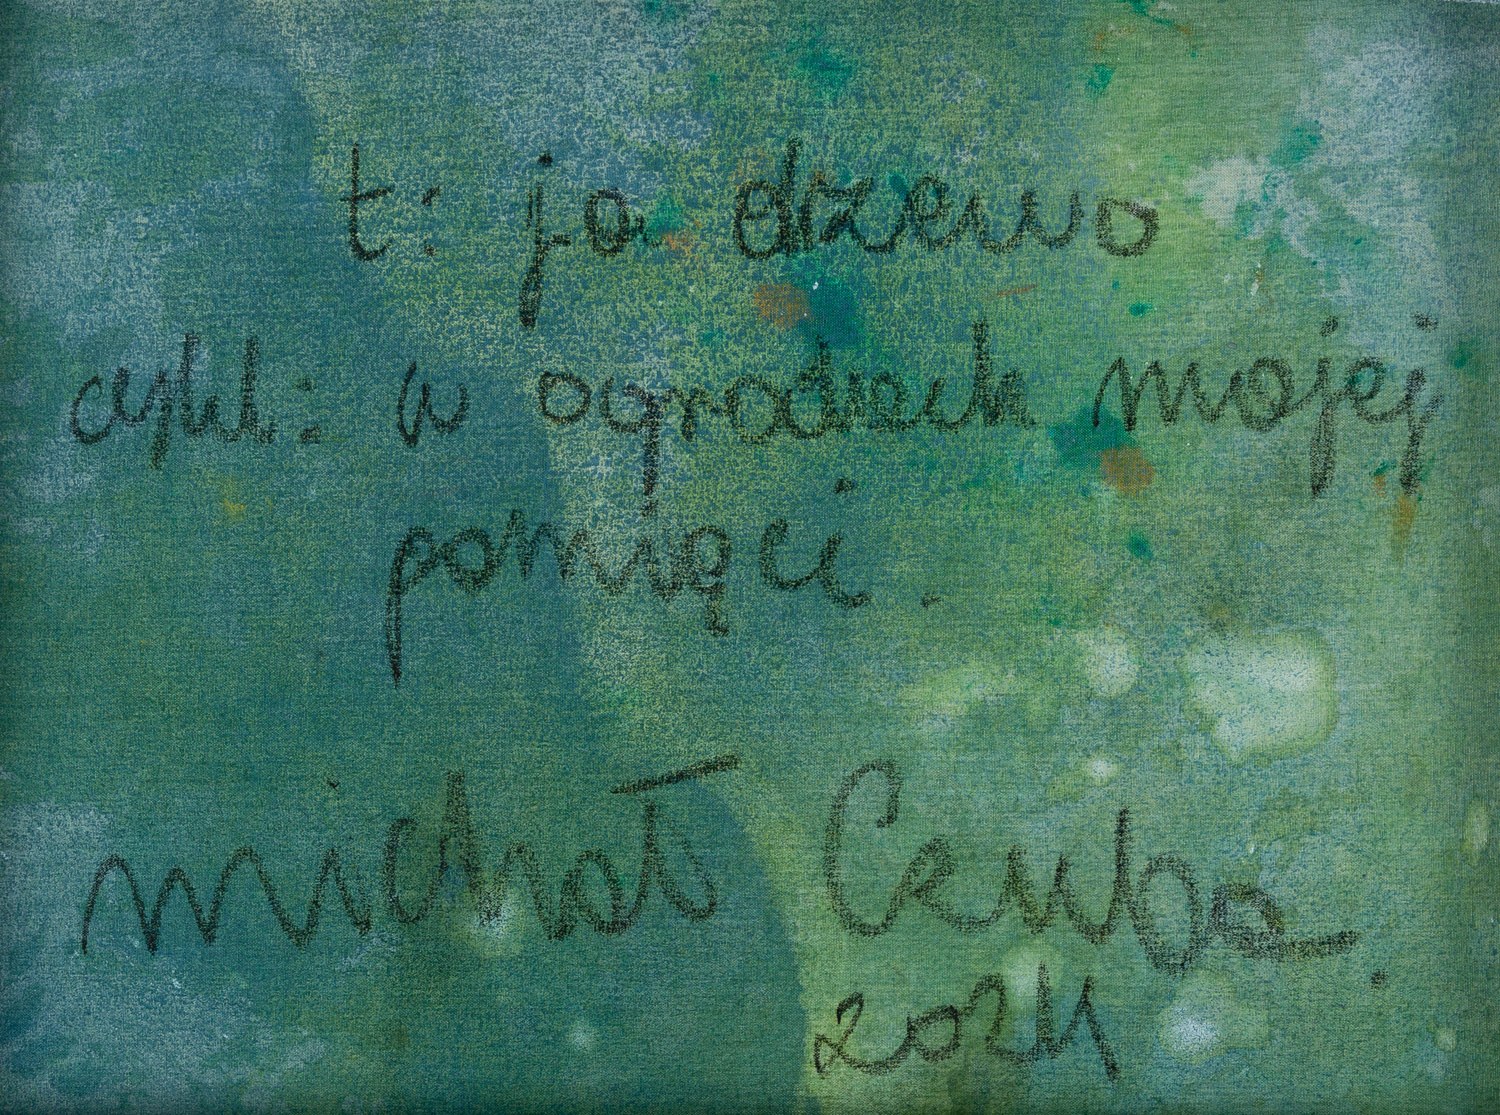 t: ja drzewo
cykl: w ogrodach mojej
pamięci.
michał Czuba.
2024